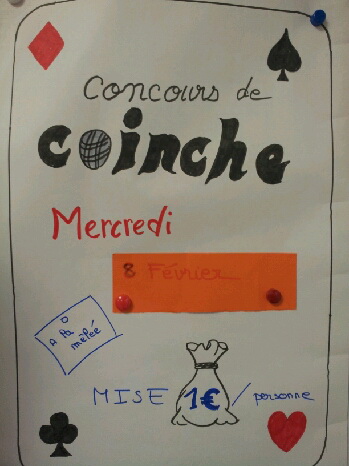 Concours de
coinche
Mercredi
8 Février
A la
mêlée
MISE 1€ / personne